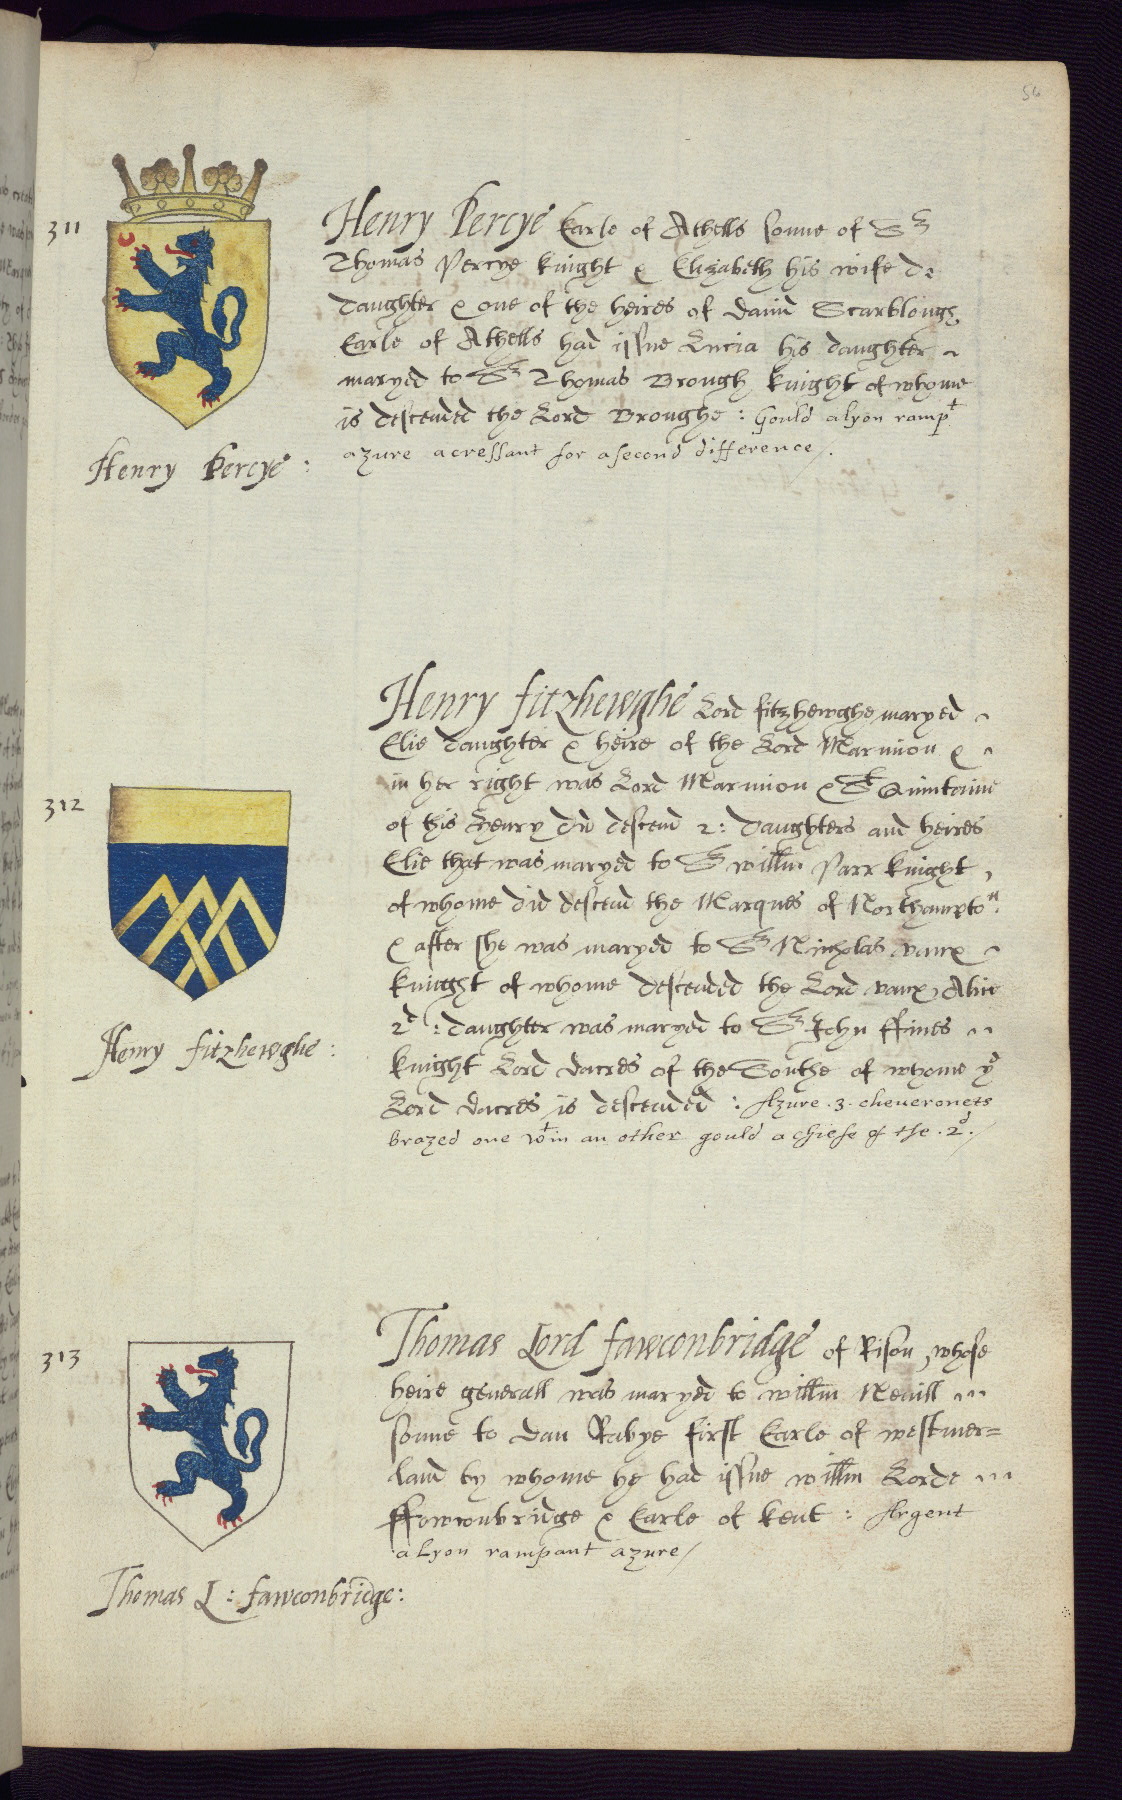 56
311
Henry Percye Earle of Athells sonne of Sr
Thomas Percye knight & Elizabeth his wife
daughter & one of the heires of
Earle of Athells had issue Lucia his daughter
maryed to Sr Thomas Brough knight of whome
is descended the Lord Broughe : Gould a lyon rampt
azure a cressant for a second difference /.
Henry Percye :
Henry fitzhewghe Lord fitzhewghe maryed
Elie daughter & heire of the Lord Marmion &
in her right was Lord Marmion & St Quintaine
312
of this Henry did descend 2 : daughters and heires
Elie that was maryed to Sr willm Parr knight ,
of whome did descend the Marques of Northampton
& after she was maryed to Sr Nicholas vaux
knight of whome descended the Lord vaux, Alice
2d : daughter was maryed to Sr John ffines
knight Lord dacres of the Southe of whome ye
Lord dacres is descended : Azure . 3 . cheueronets
brazed one wtin an other gould a chiefe of the . 2d . /
Henry fitzhewghe :
313
Thomas Lord fawconbridge of Rison , whose
heire generall was maryed to willm Nevill
sonne to Dan Rabye first Earle of westmer=
land by whome he had issue willm Lorde
ffowconbridge & Earle of kent : Argent
a Lyon rampant azure /
Thomas L : fawconbridge :